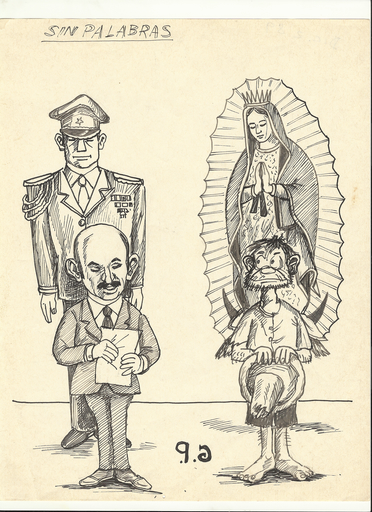 SIN PALABRAS
G.P